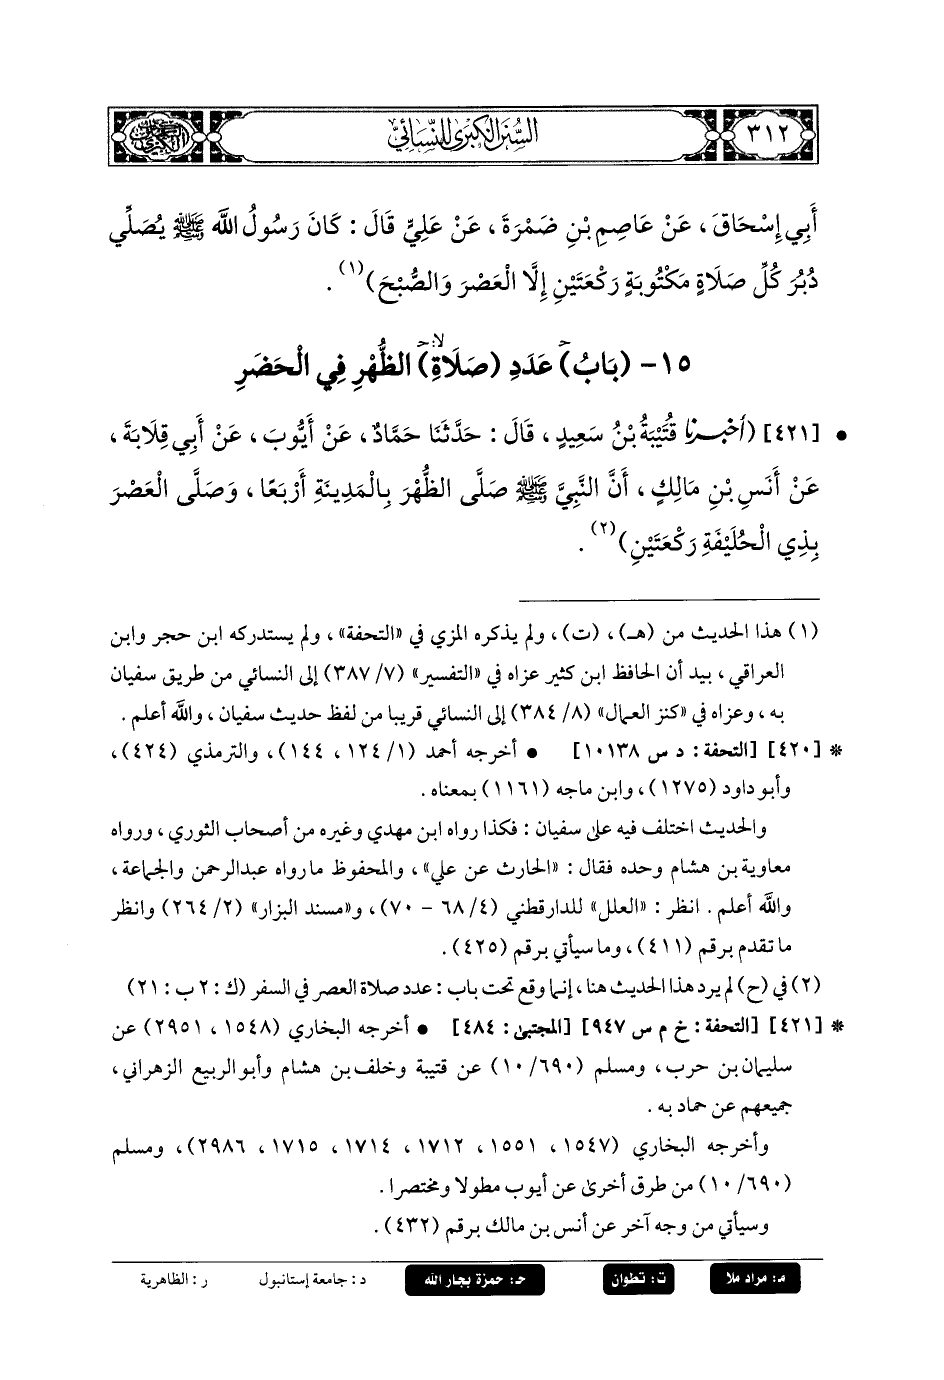 ٣١٢
السنن الكبرى للنسائي
أَبِي إِسْحَاقَ ، عَنْ عَاصِمِ بْنِ ضَمْرَةَ ، عَنْ عَلِيٍّ قَالَ : كَانَ رَسُولُ اللَّه ﷺ يُصَلِّي
دُبُرَ كُلِّ صَلَاةٍ مَكْتُوبَةٍ رَكْعَتَيْنِ إِلَّا الْعَصْرَ وَالصُّبْحَ)(١) .
١٥- (بَابُ) عَدَدِ (صَلَاةِ) الظُّهْرِ فِي الْحَضَرِ
• [٤٢١] (أخبرنا قُتَيْبَةُ بْنُ سَعِيدٍ ، قَالَ : حَدَّثَنَا حَمَّادٌ ، عَنْ أَيُّوبَ ، عَنْ أَبِي قِلَابَةَ ،
عَنْ أَنَسِ بْنِ مَالِكٍ ، أَنَّ النَّبِيَّ ﷺ صَلَّى الظُّهْرَ بِالْمَدِينَةِ أَرْبَعًا ، وَصَلَّى الْعَصْرَ
بِذِي الْحُلَيْفَةِ رَكْعَتَيْنِ)(٢) .
(١) هذا الحديث من (هـ) ، (ت) ، ولم يذكره المزي في «التحفة» ، ولم يستدركه ابن حجر وابن
العراقي ، بيد أن الحافظ ابن كثير عزاه في «التفسير» (٧/ ٣٨٧) إلى النسائي من طريق سفيان
به ، وعزاه في «كنز العمال» (٨/ ٣٨٤) إلى النسائي قريبا من لفظ حديث سفيان ، واللَّه أعلم .
* [٤٢٠] [التحفة : د س ١٠١٣٨] • أخرجه أحمد (١/ ١٢٤ ، ١٤٤) ، والترمذي (٤٢٤) ،
وأبو داود (١٢٧٥) ، وابن ماجه (١١٦١) بمعناه .
والحديث اختلف فيه على سفيان : فكذا رواه ابن مهدي وغيره من أصحاب الثوري ، ورواه
معاوية بن هشام وحده فقال : «الحارث عن علي» ، والمحفوظ ما رواه عبدالرحمن والجماعة ،
واللَّه أعلم . انظر : «العلل» للدارقطني (٤/ ٦٨ - ٧٠) ، و«مسند البزار» (٢/ ٢٦٤) وانظر
ما تقدم برقم (٤١١) ، وما سيأتي برقم (٤٢٥) .
(٢) في (ح) لم يرد هذا الحديث هنا ، إنما وقع تحت باب : عدد صلاة العصر في السفر (ك : ٢ ب : ٢١)
* [٤٢١] [التحفة : خ م س ٩٤٧] [المجتبى : ٤٨٤] • أخرجه البخاري (١٥٤٨ ، ٢٩٥١) عن
سليمان بن حرب ، ومسلم (٦٩٠/ ١٠) عن قتيبة وخلف بن هشام وأبو الربيع الزهراني ،
جميعهم عن حماد به .
وأخرجه البخاري (١٥٤٧ ، ١٥٥١ ، ١٧١٢ ، ١٧١٤ ، ١٧١٥ ، ٢٩٨٦) ، ومسلم
(٦٩٠/ ١٠) من طرق أخرى عن أيوب مطولا ومختصرا .
وسيأتي من وجه آخر عن أنس بن مالك برقم (٤٣٢) .
م: مراد ملا ت: تطوان حـ: حمزة بجار الله د : جامعة إستانبول ر : الظاهرية